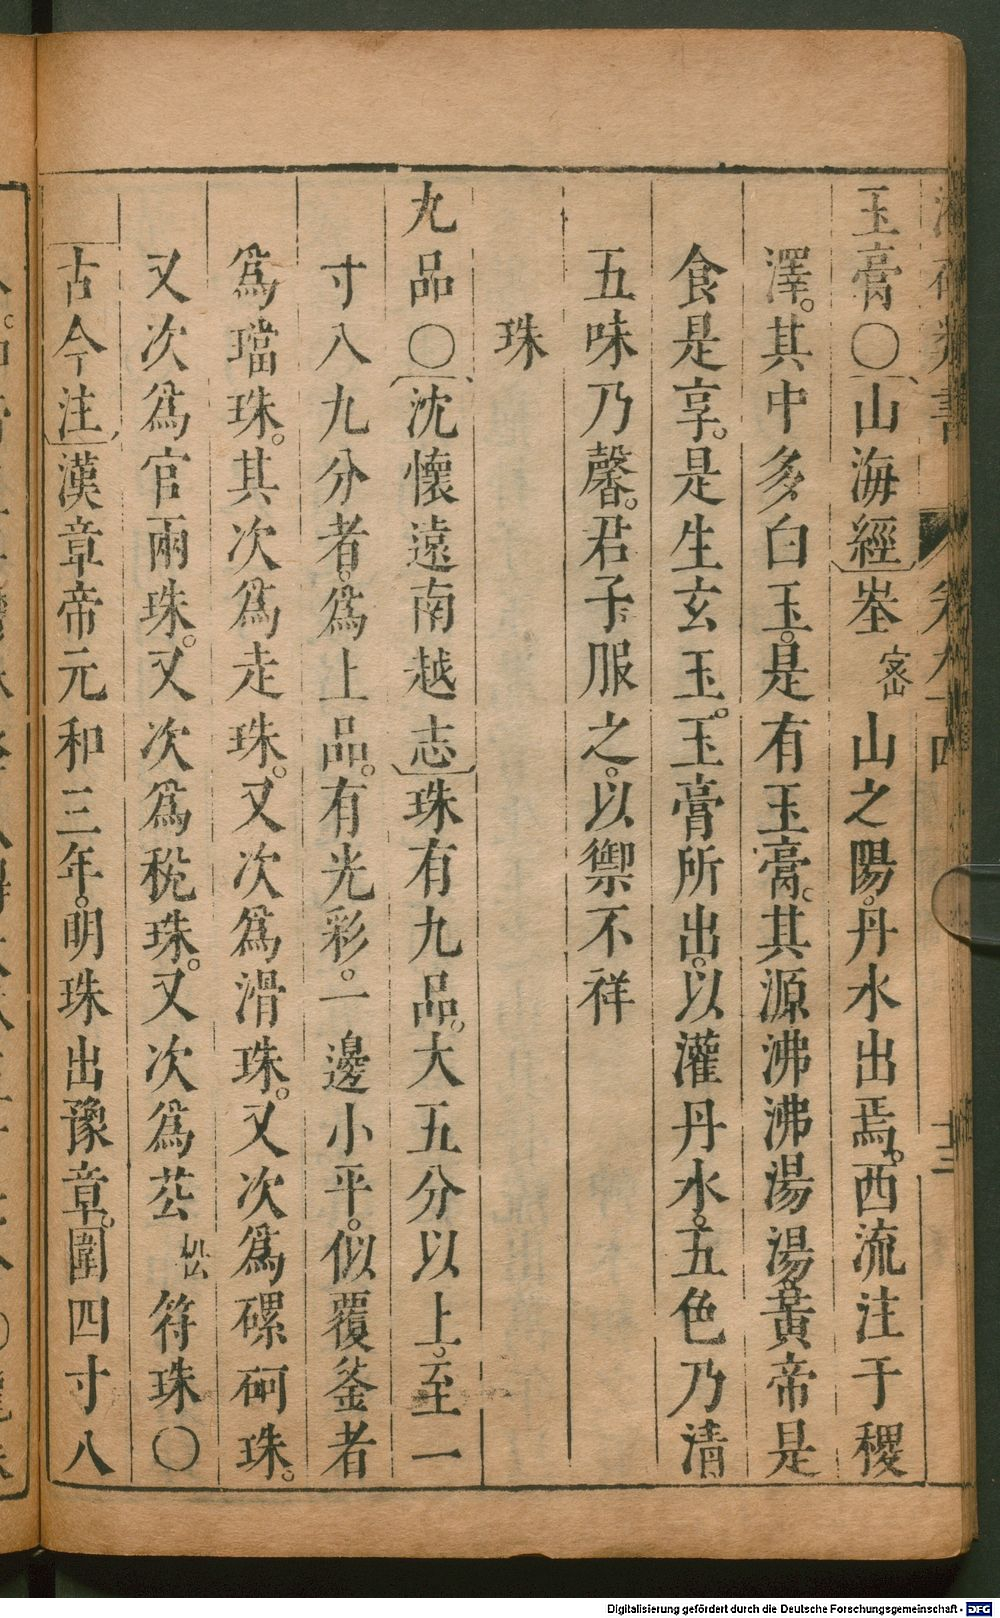 玉膏○山海經峚密山之陽。丹水出焉。西流注于稷
澤。其中多白玉。是有玉膏。其源沸沸湯湯。黃帝是
食是享。是生玄玉。玉膏所出。以灌丹水。五色乃清。
五味乃馨。君子服之。以禦不祥
珠
九品○沈懷遠南越志珠有九品。大五分以上。至一
寸八九分者。爲上品。有光彩。一邊小平。似覆釜者
爲璫珠。其次爲走珠。又次爲滑珠。又次爲磥砢珠。
又次爲官雨珠。又次爲稅珠。又次爲苮松符珠○
古今注漢章帝元和三年。明珠出豫章。圍四寸八
Digitalisierung gefördert durch die Deutsche Forschungsgemeinschaft - DFG